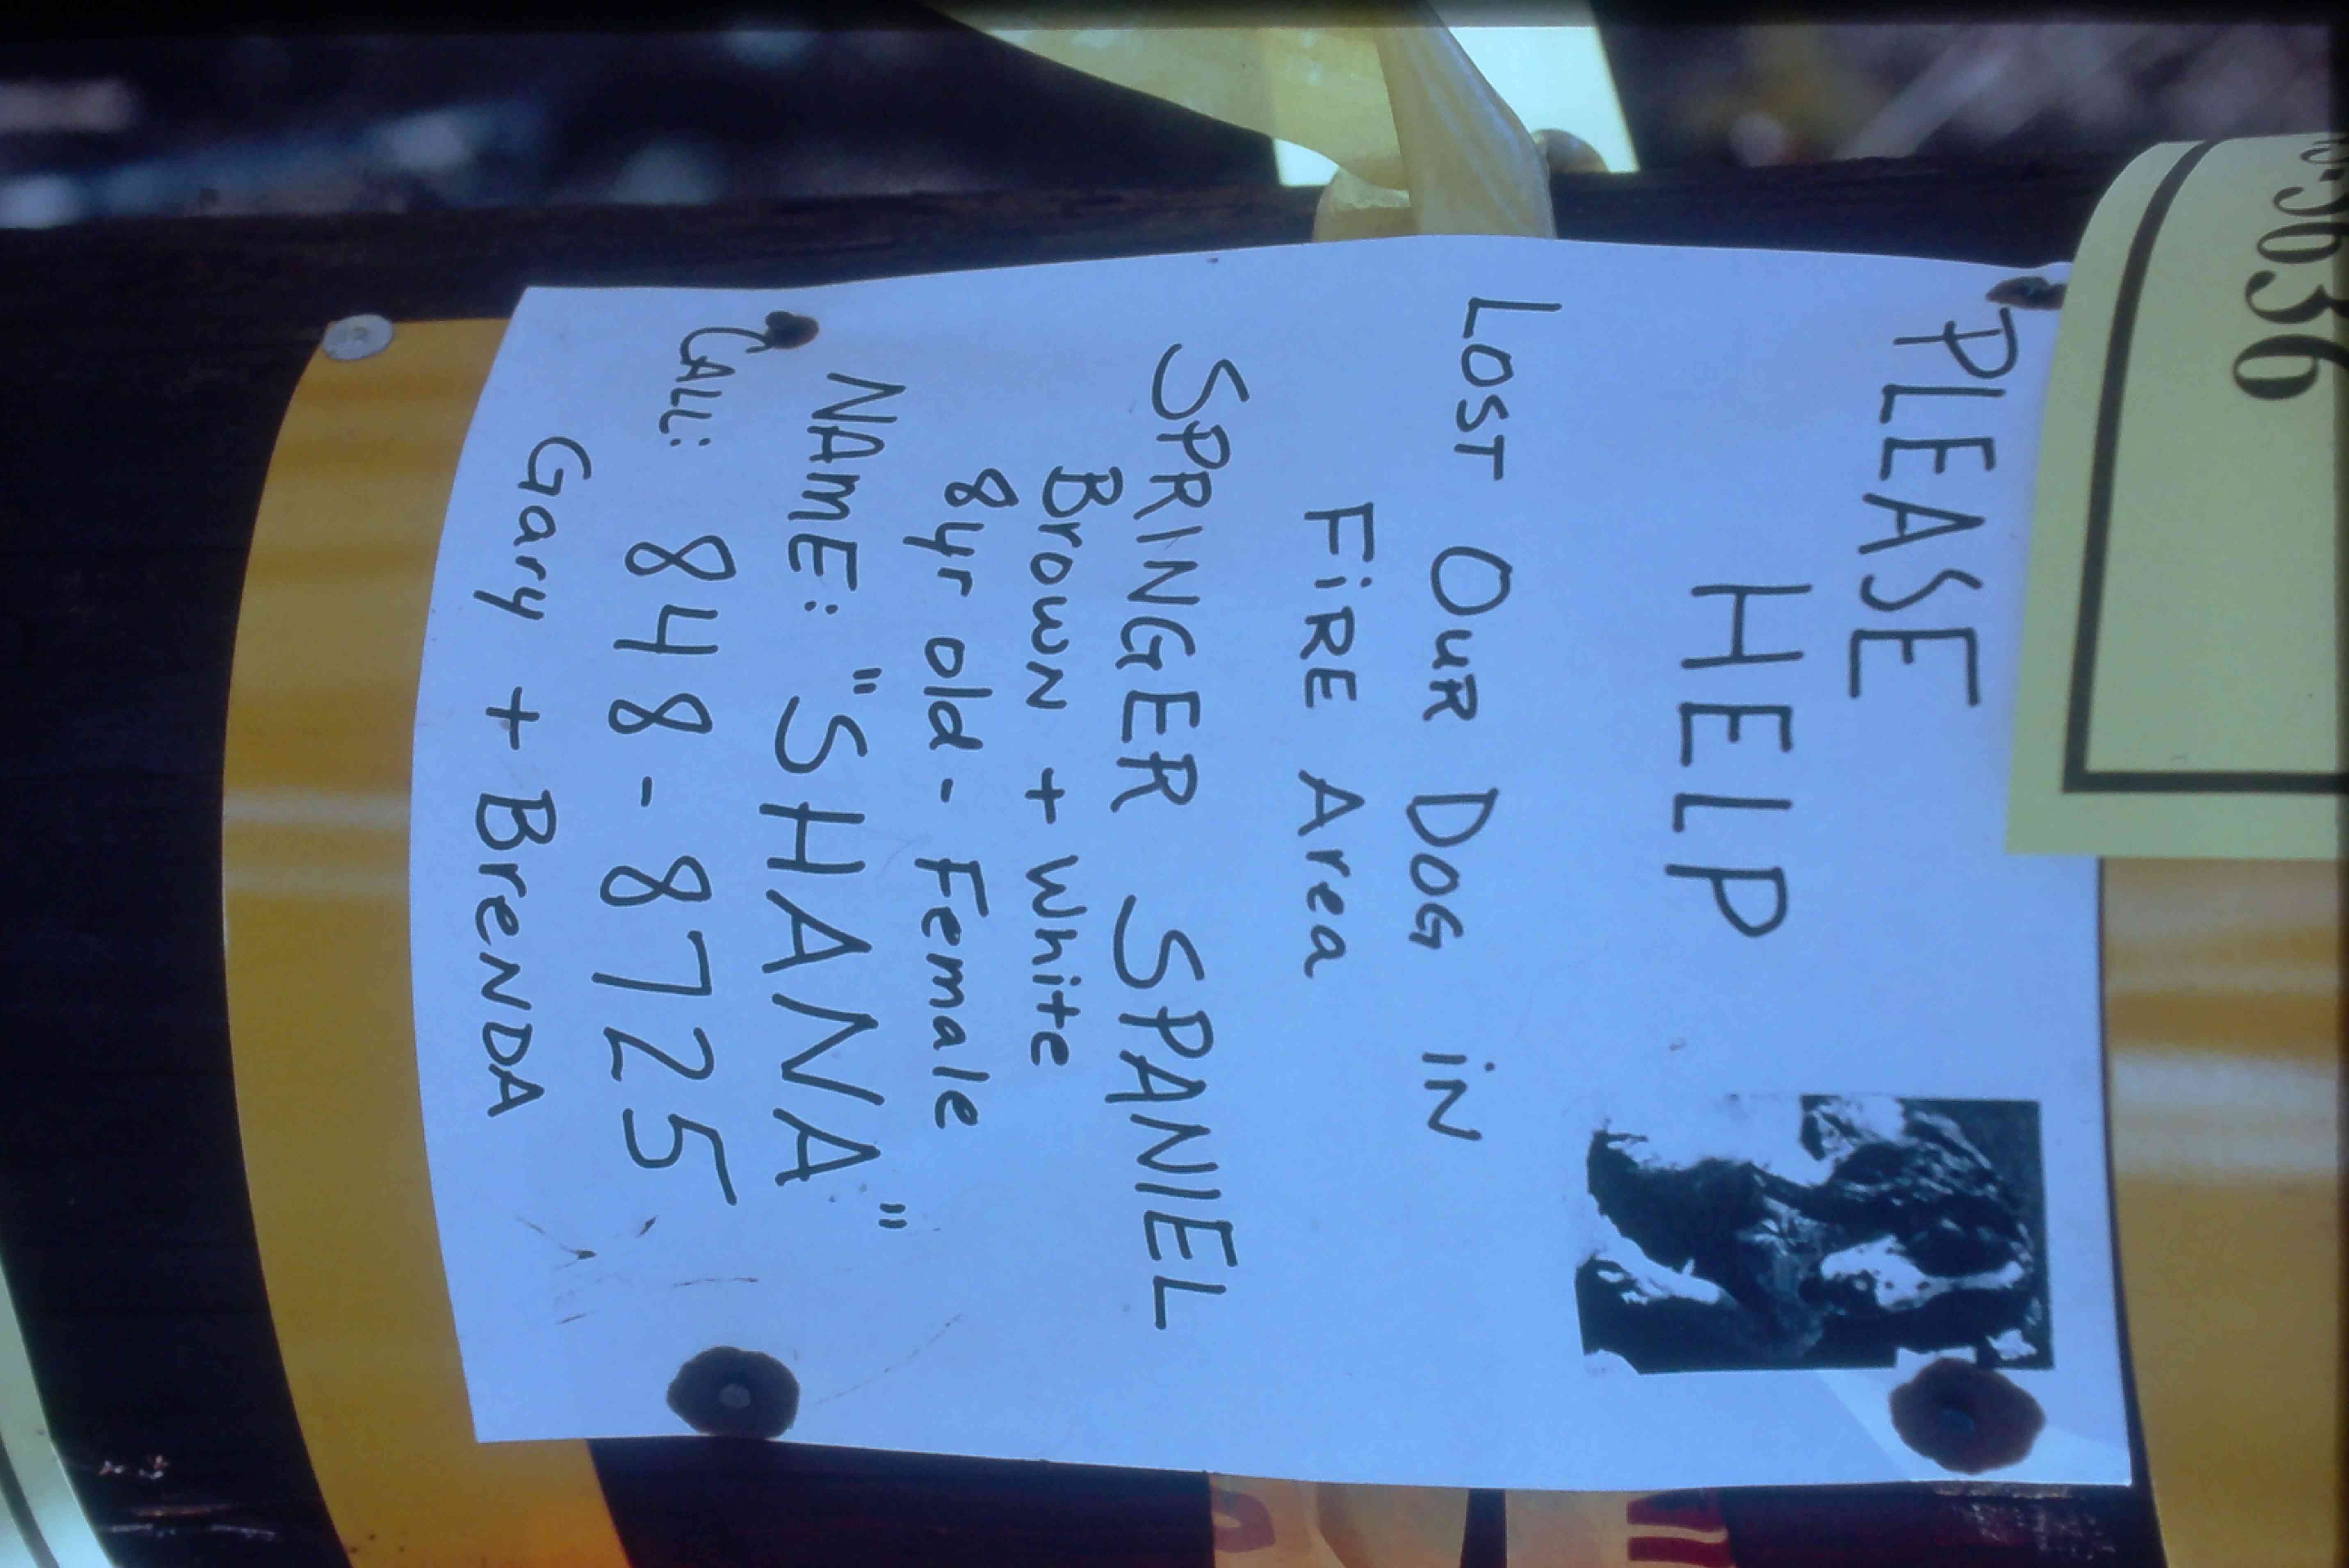 PLEASE
HELP
LOST OUR DOG iN
FiRE Area
SPRINGER SPANIEL
Brown + White
8yr old - Female
NAME: "SHANA"
CALL: 848-8725
Gary + BreNDA
3636